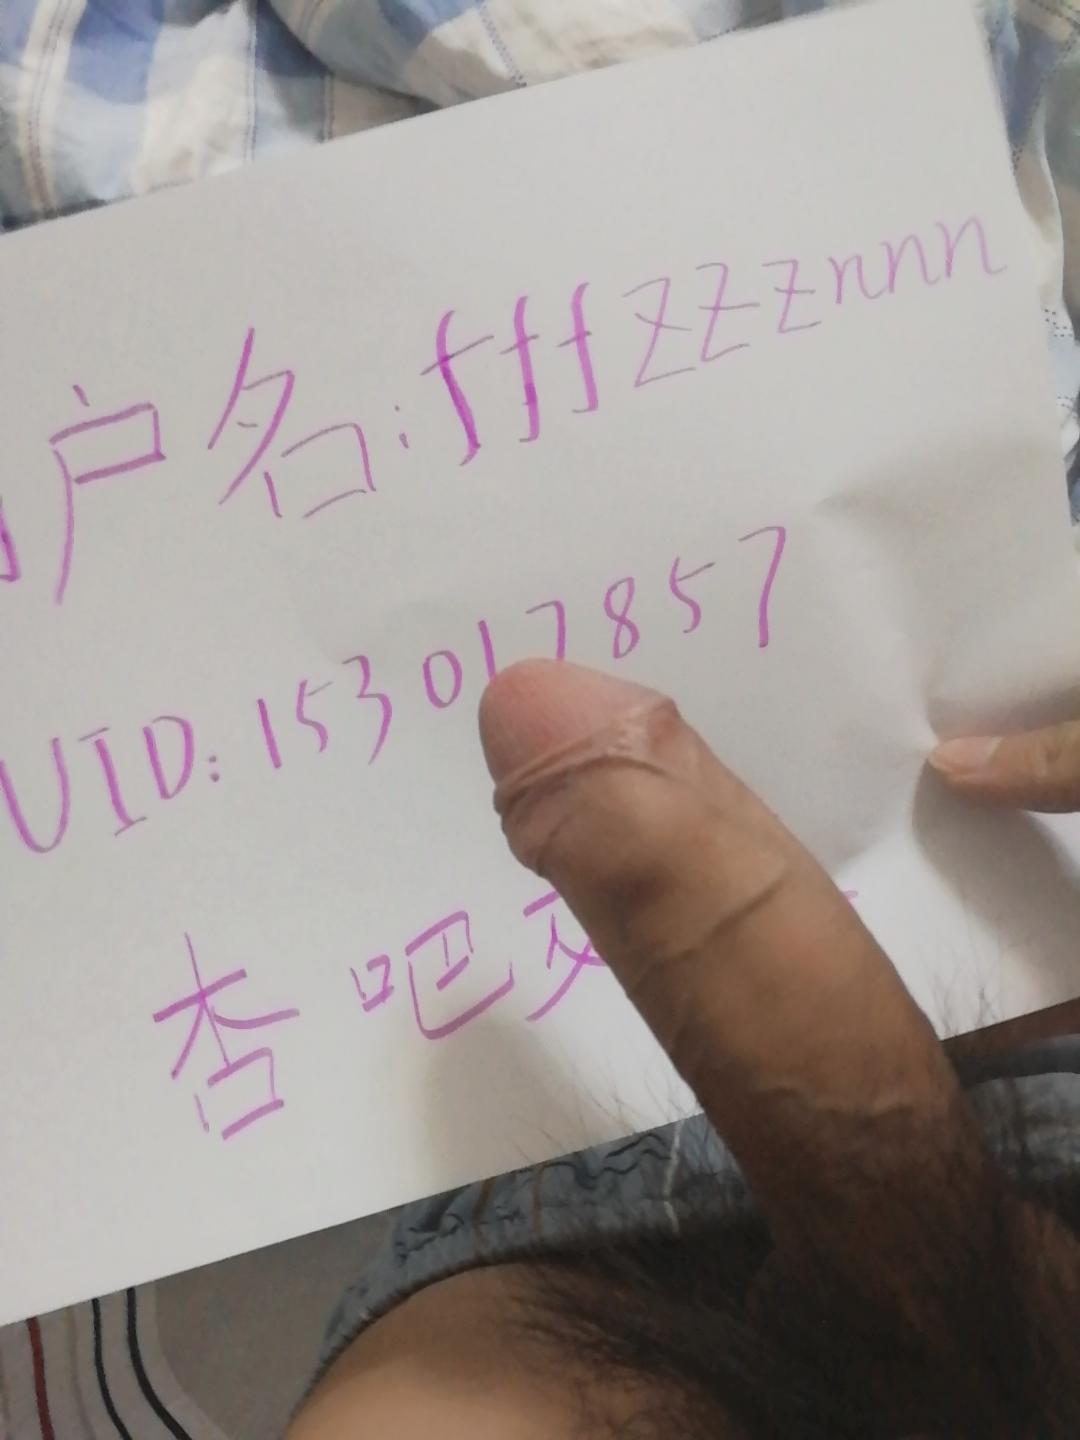 户名:fffzzznnn
UID:153017857
杏吧